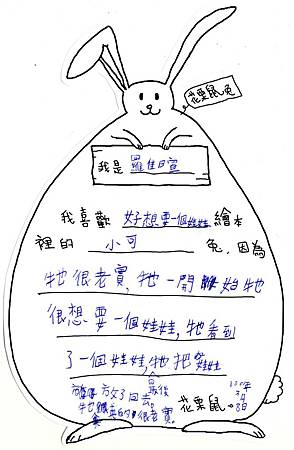 花栗鼠兔
我是 羅佳暄
我喜歡 好想要一個娃娃 繪本
裡的 小可 兔，因為
牠很老實，牠一開始牠
很想要一個娃娃，牠看到
了一個娃娃，牠把娃娃
最後
放了回去。
牠真的很老實。
花栗鼠